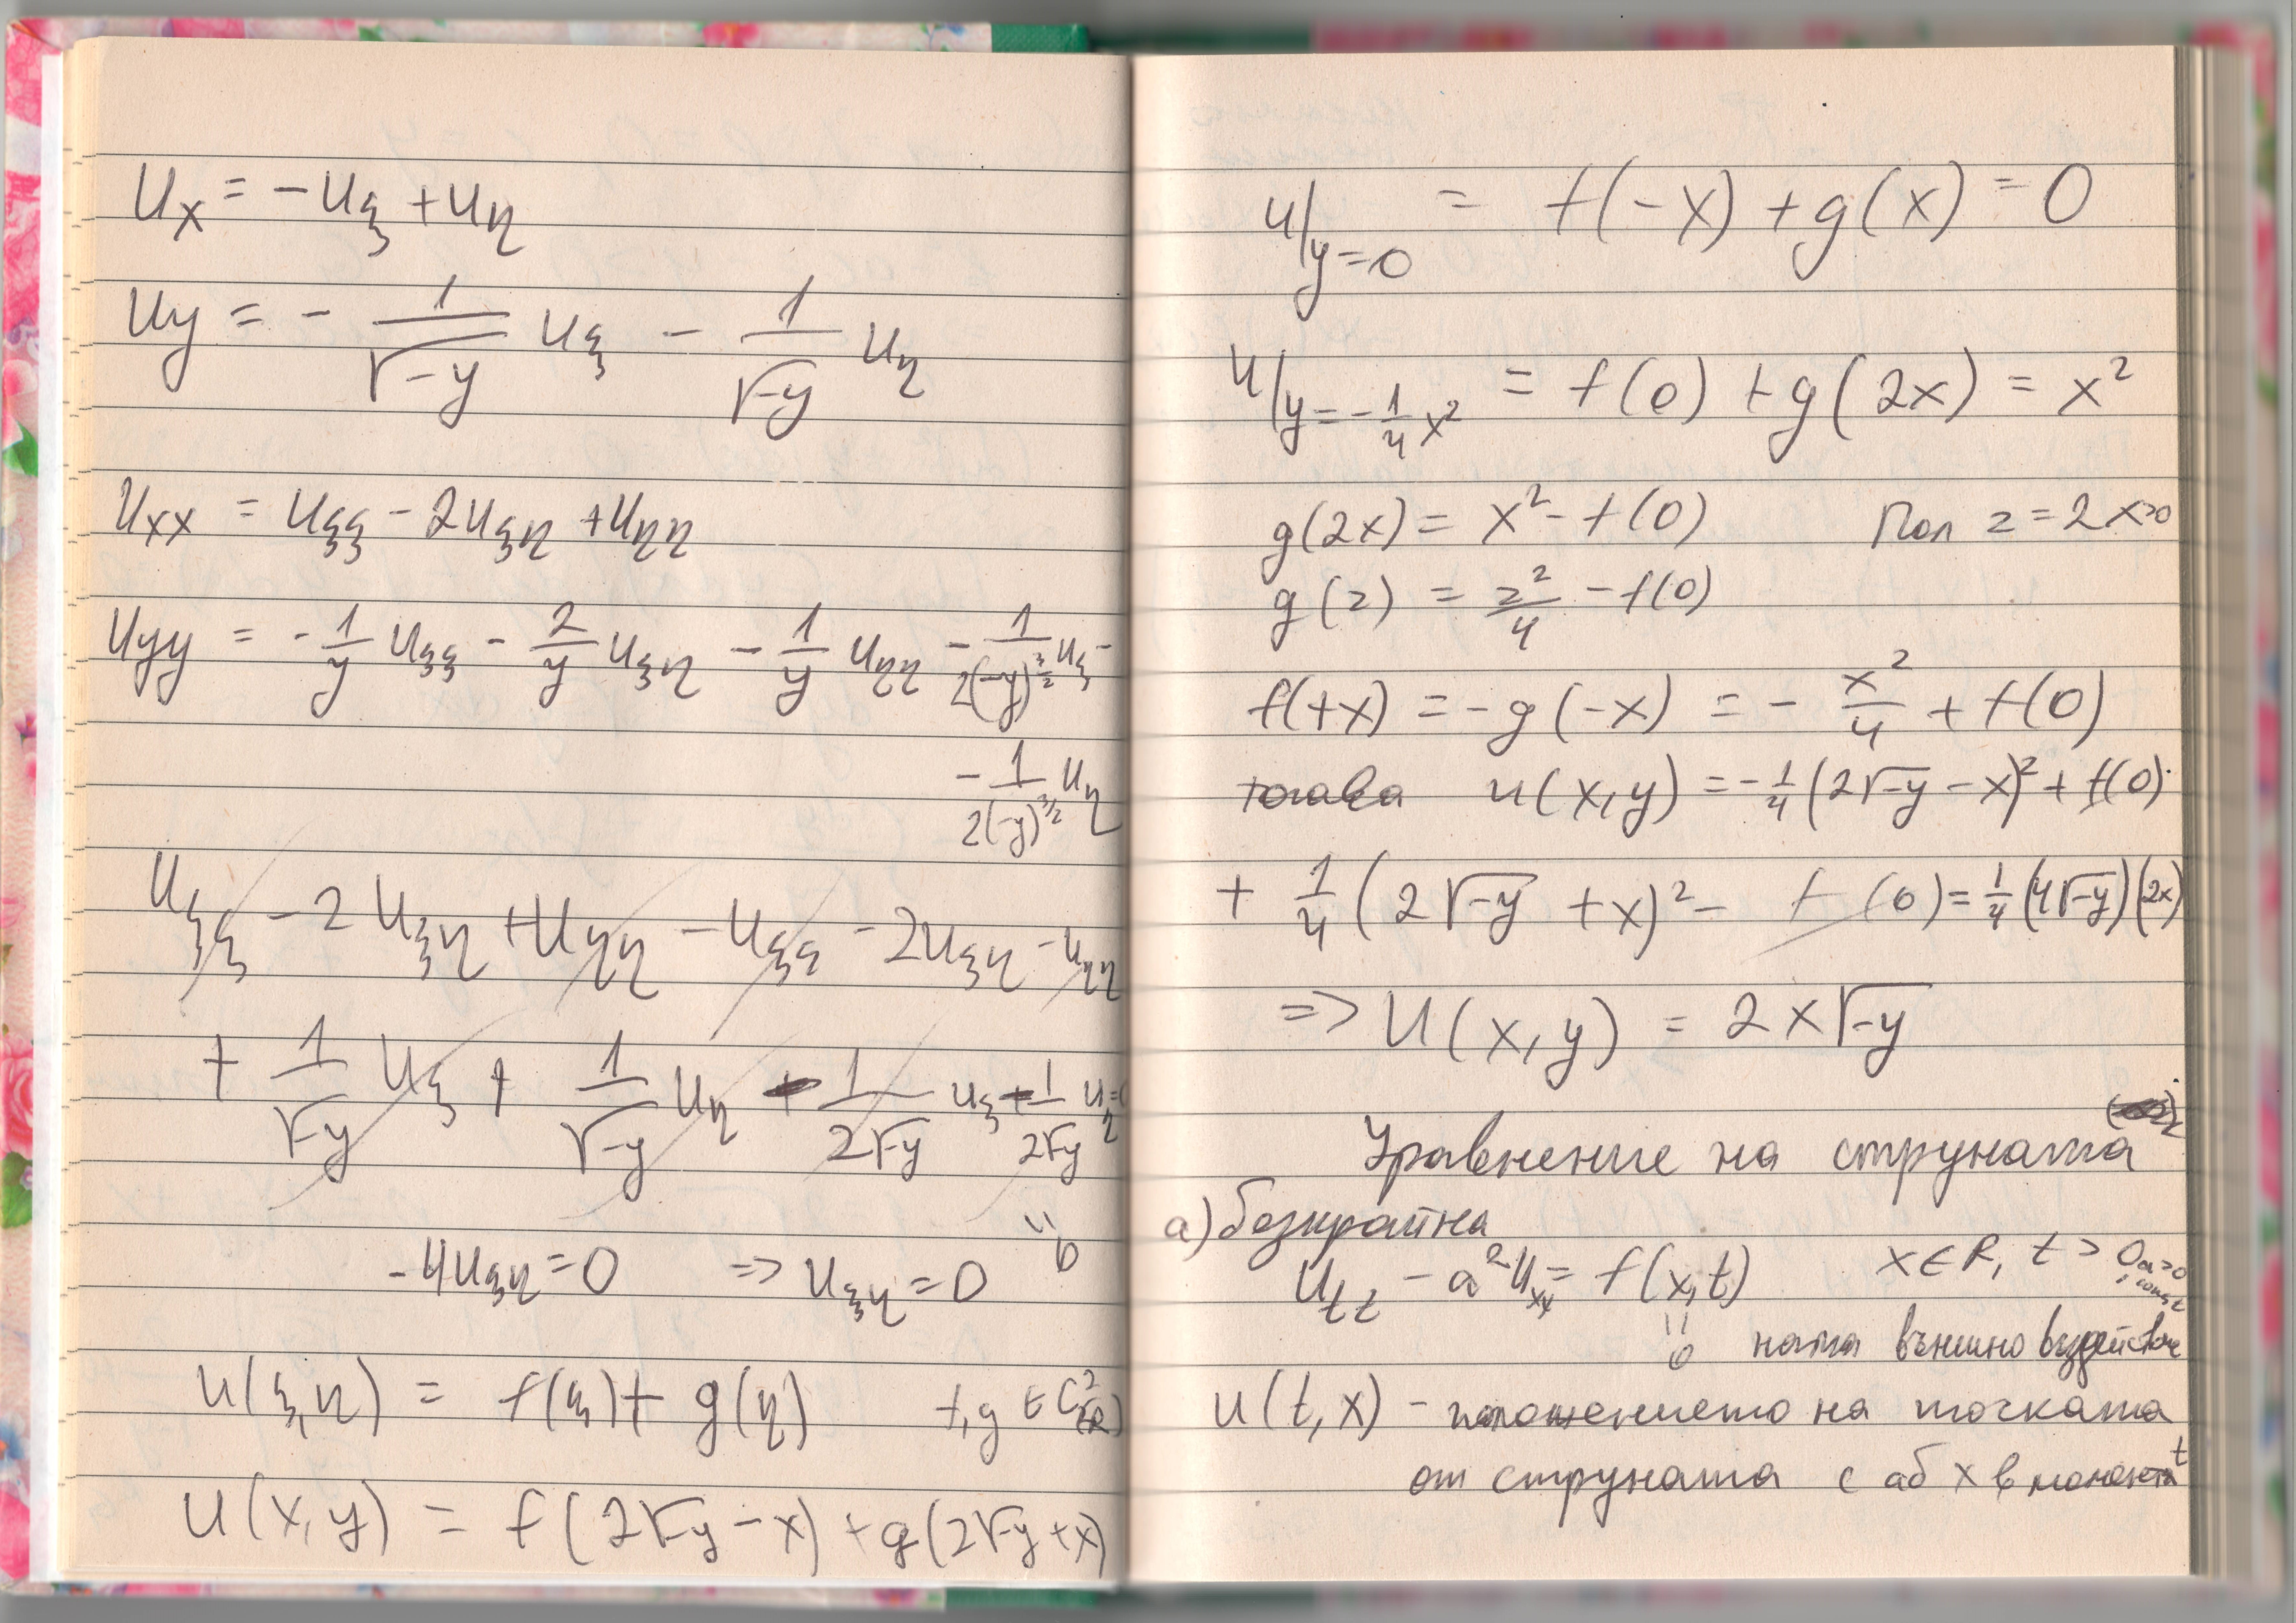 Uₓ = -U_ξ + U_η
U_y = - 1/√-y U_ξ - 1/√-y U_η
Uₓₓ = U_ξξ - 2U_ξη + U_ηη
U_yy = - 1/y U_ξξ - 2/y U_ξη - 1/y U_ηη - 1/2(-y)^3/2 U_ξ -
- 1/2(-y)^3/2 U_η
U_ξξ - 2U_ξη + U_ηη - U_ξξ - 2U_ξη - U_ηη
+ 1/√-y U_ξ + 1/√-y U_η - 1/2√-y U_ξ - 1/2√-y U_η =
0
-4U_ξη = 0 => U_ξη = 0
U(ξ,η) = f(ξ) + g(η) f,g ∈ C²(R)
U(x,y) = f(2√-y - x) + g(2√-y + x)
U/y=0 = f(-x) + g(x) = 0
U/y=-1/4 x² = f(0) + g(2x) = x²
g(2x) = x² - f(0) Пол z = 2x>0
g(z) = z²/4 - f(0)
f(+x) = -g(-x) = - x²/4 + f(0)
тогава u(x,y) = -1/4 (2√-y - x)² + f(0)
+ 1/4 (2√-y + x)² - f(0) = 1/4 (4√-y)(2x)
=> U(x,y) = 2x√-y
Уравнение на струната
а) безкрайна
U_tt - a² U_xx = f(x,t) x∈R, t > 0, a>0 const
0 няма външно въздействие
u(t,x) - положението на точката
от струната с аб x в момента t